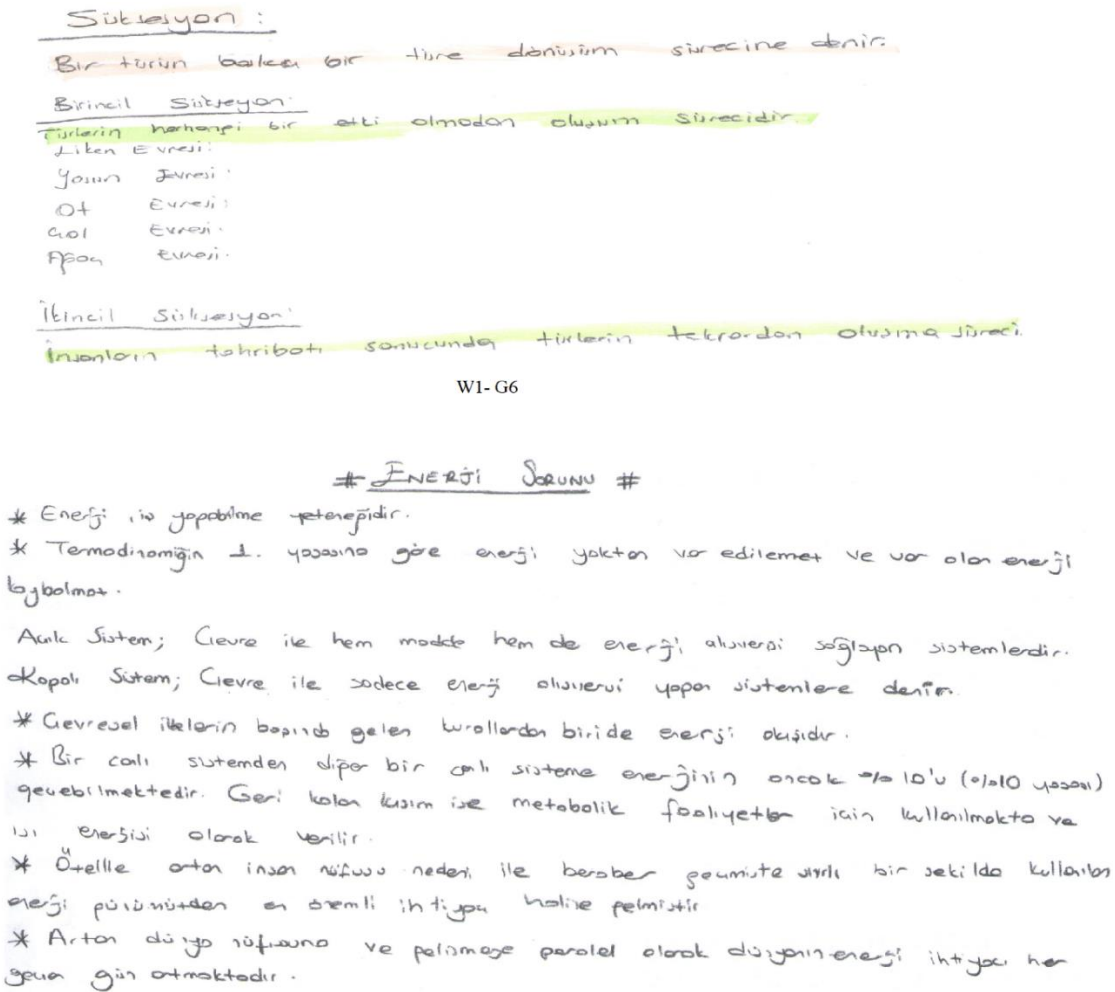 Süksesyon :
Bir türün başka bir türe dönüşüm sürecine denir.
Birincil Süksesyon:
Türlerin herhangi bir etki olmadan oluşum sürecidir.
Liken Evresi:
Yosun Evresi:
Ot Evresi:
Çalı Evresi.
Ağaç Evresi.
İkincil Süksesyon:
İnsanların tahribatı sonucunda türlerin tekrardan oluşma süreci.
W1- G6
# ENERJİ SORUNU #
* Enerji, iş yapabilme yeteneğidir.
* Termodinamiğin 1. yasasına göre enerji yoktan var edilemez ve var olan enerji
kaybolmaz.
Açık Sistem; Çevre ile hem madde hem de enerji alışverişi sağlayan sistemlerdir.
Kapalı Sistem; Çevre ile sadece enerji alışverişi yapan sistemlere denir.
* Çevresel ilkelerin başında gelen kurallardan biride enerji akışıdır.
* Bir canlı sistemden diğer bir canlı sisteme enerjinin ancak %10'u (%10 yasası)
geçebilmektedir. Geri kalan kısım ise metabolik faaliyetler için kullanılmakta ve
ısı enerjisi olarak verilir.
* Özellikle artan insan nüfusu nedeni ile beraber geçmişte sınırlı bir şekilde kullanılan
enerji günümüzden en önemli ihtiyaç haline gelmiştir
* Artan dünya nüfusuna ve gelişmeye paralel olarak dünyanın enerji ihtiyacı her
geçen gün artmaktadır.